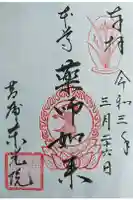 奉拝
令和三年
三月二十六日
本尊
薬師如来
東光院